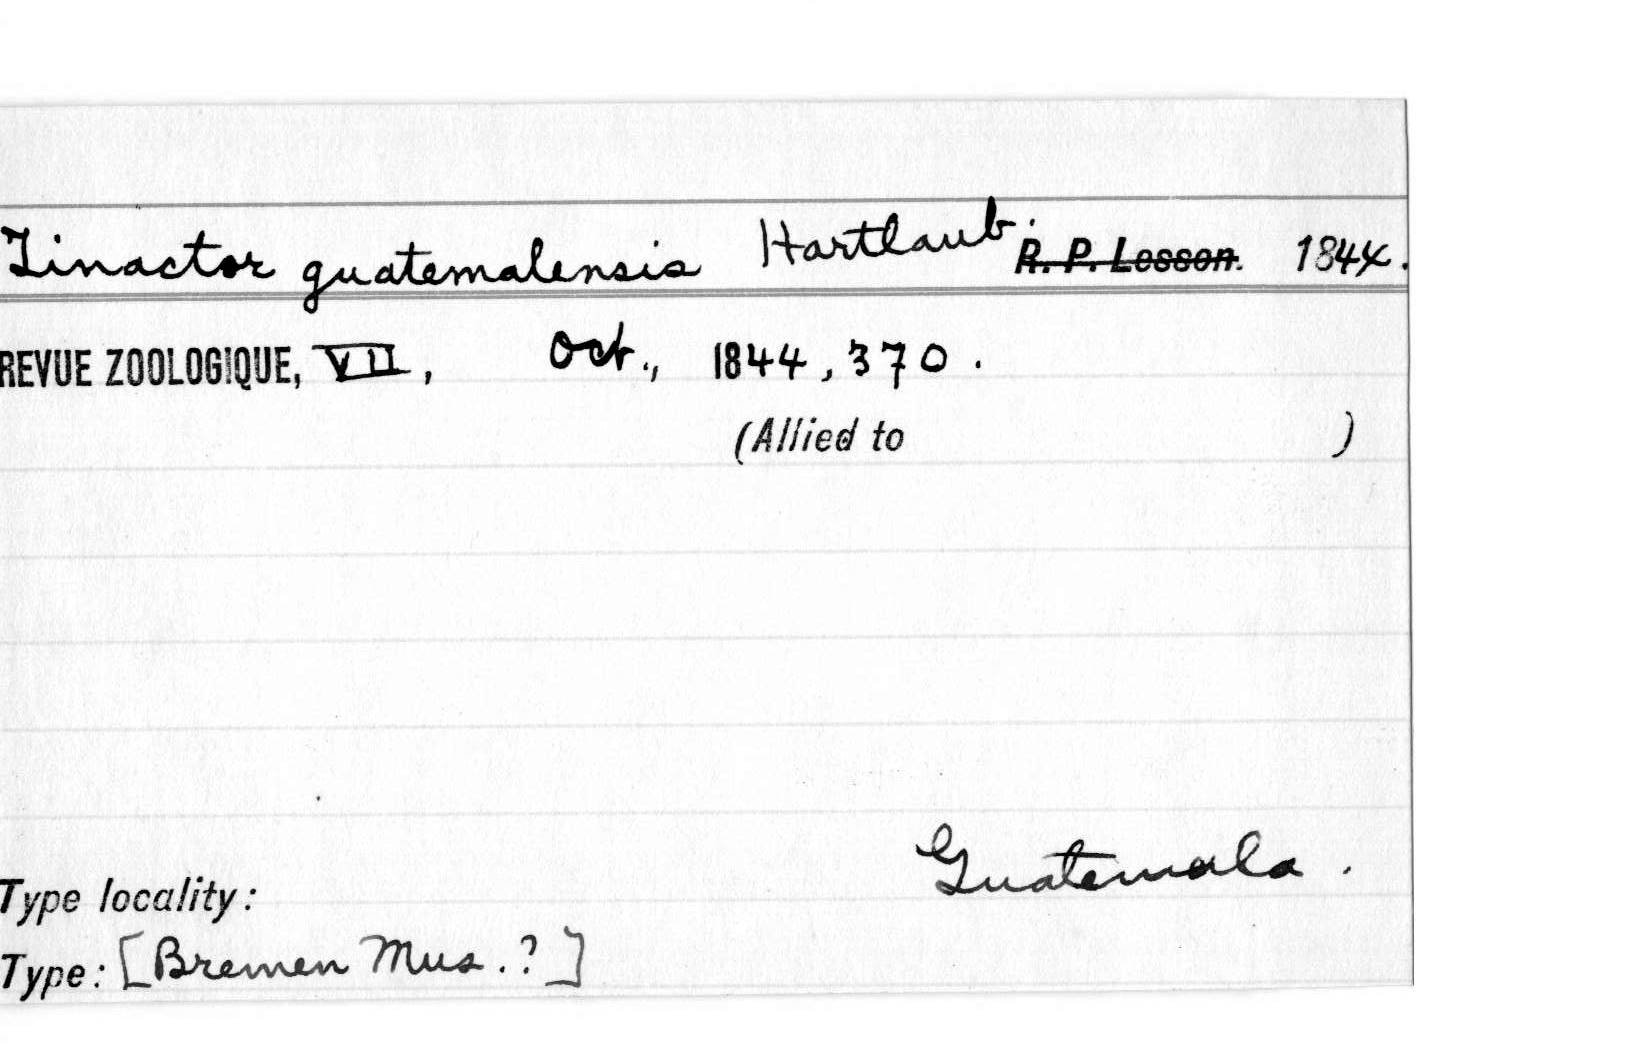 Tinactor guatemalensis Hartlaub. R. P. Lesson. 1844.
REVUE ZOOLOGIQUE, VII, Oct., 1844, 370.
(Allied to )
Guatemala.
Type locality:
Type: [Bremen Mus.?]